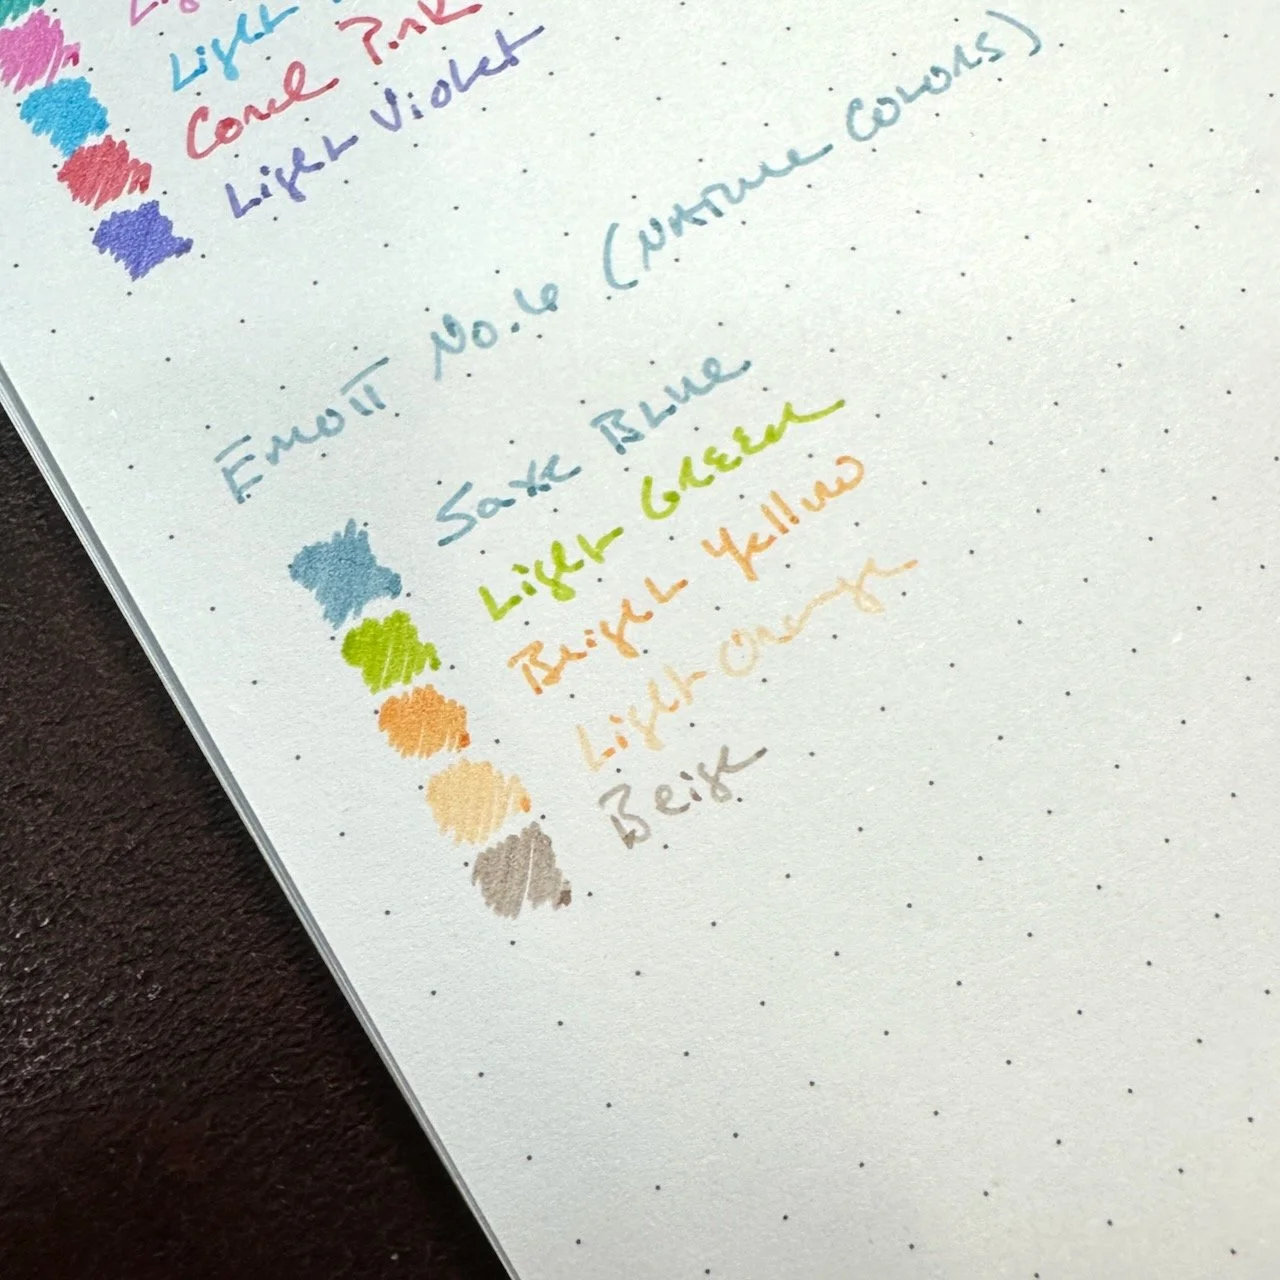 Light
Coral Pink
Light Violet
Emott No.6 (Nature Colors)
Saxe Blue
Light Green
Bright Yellow
Light Orange
Beige